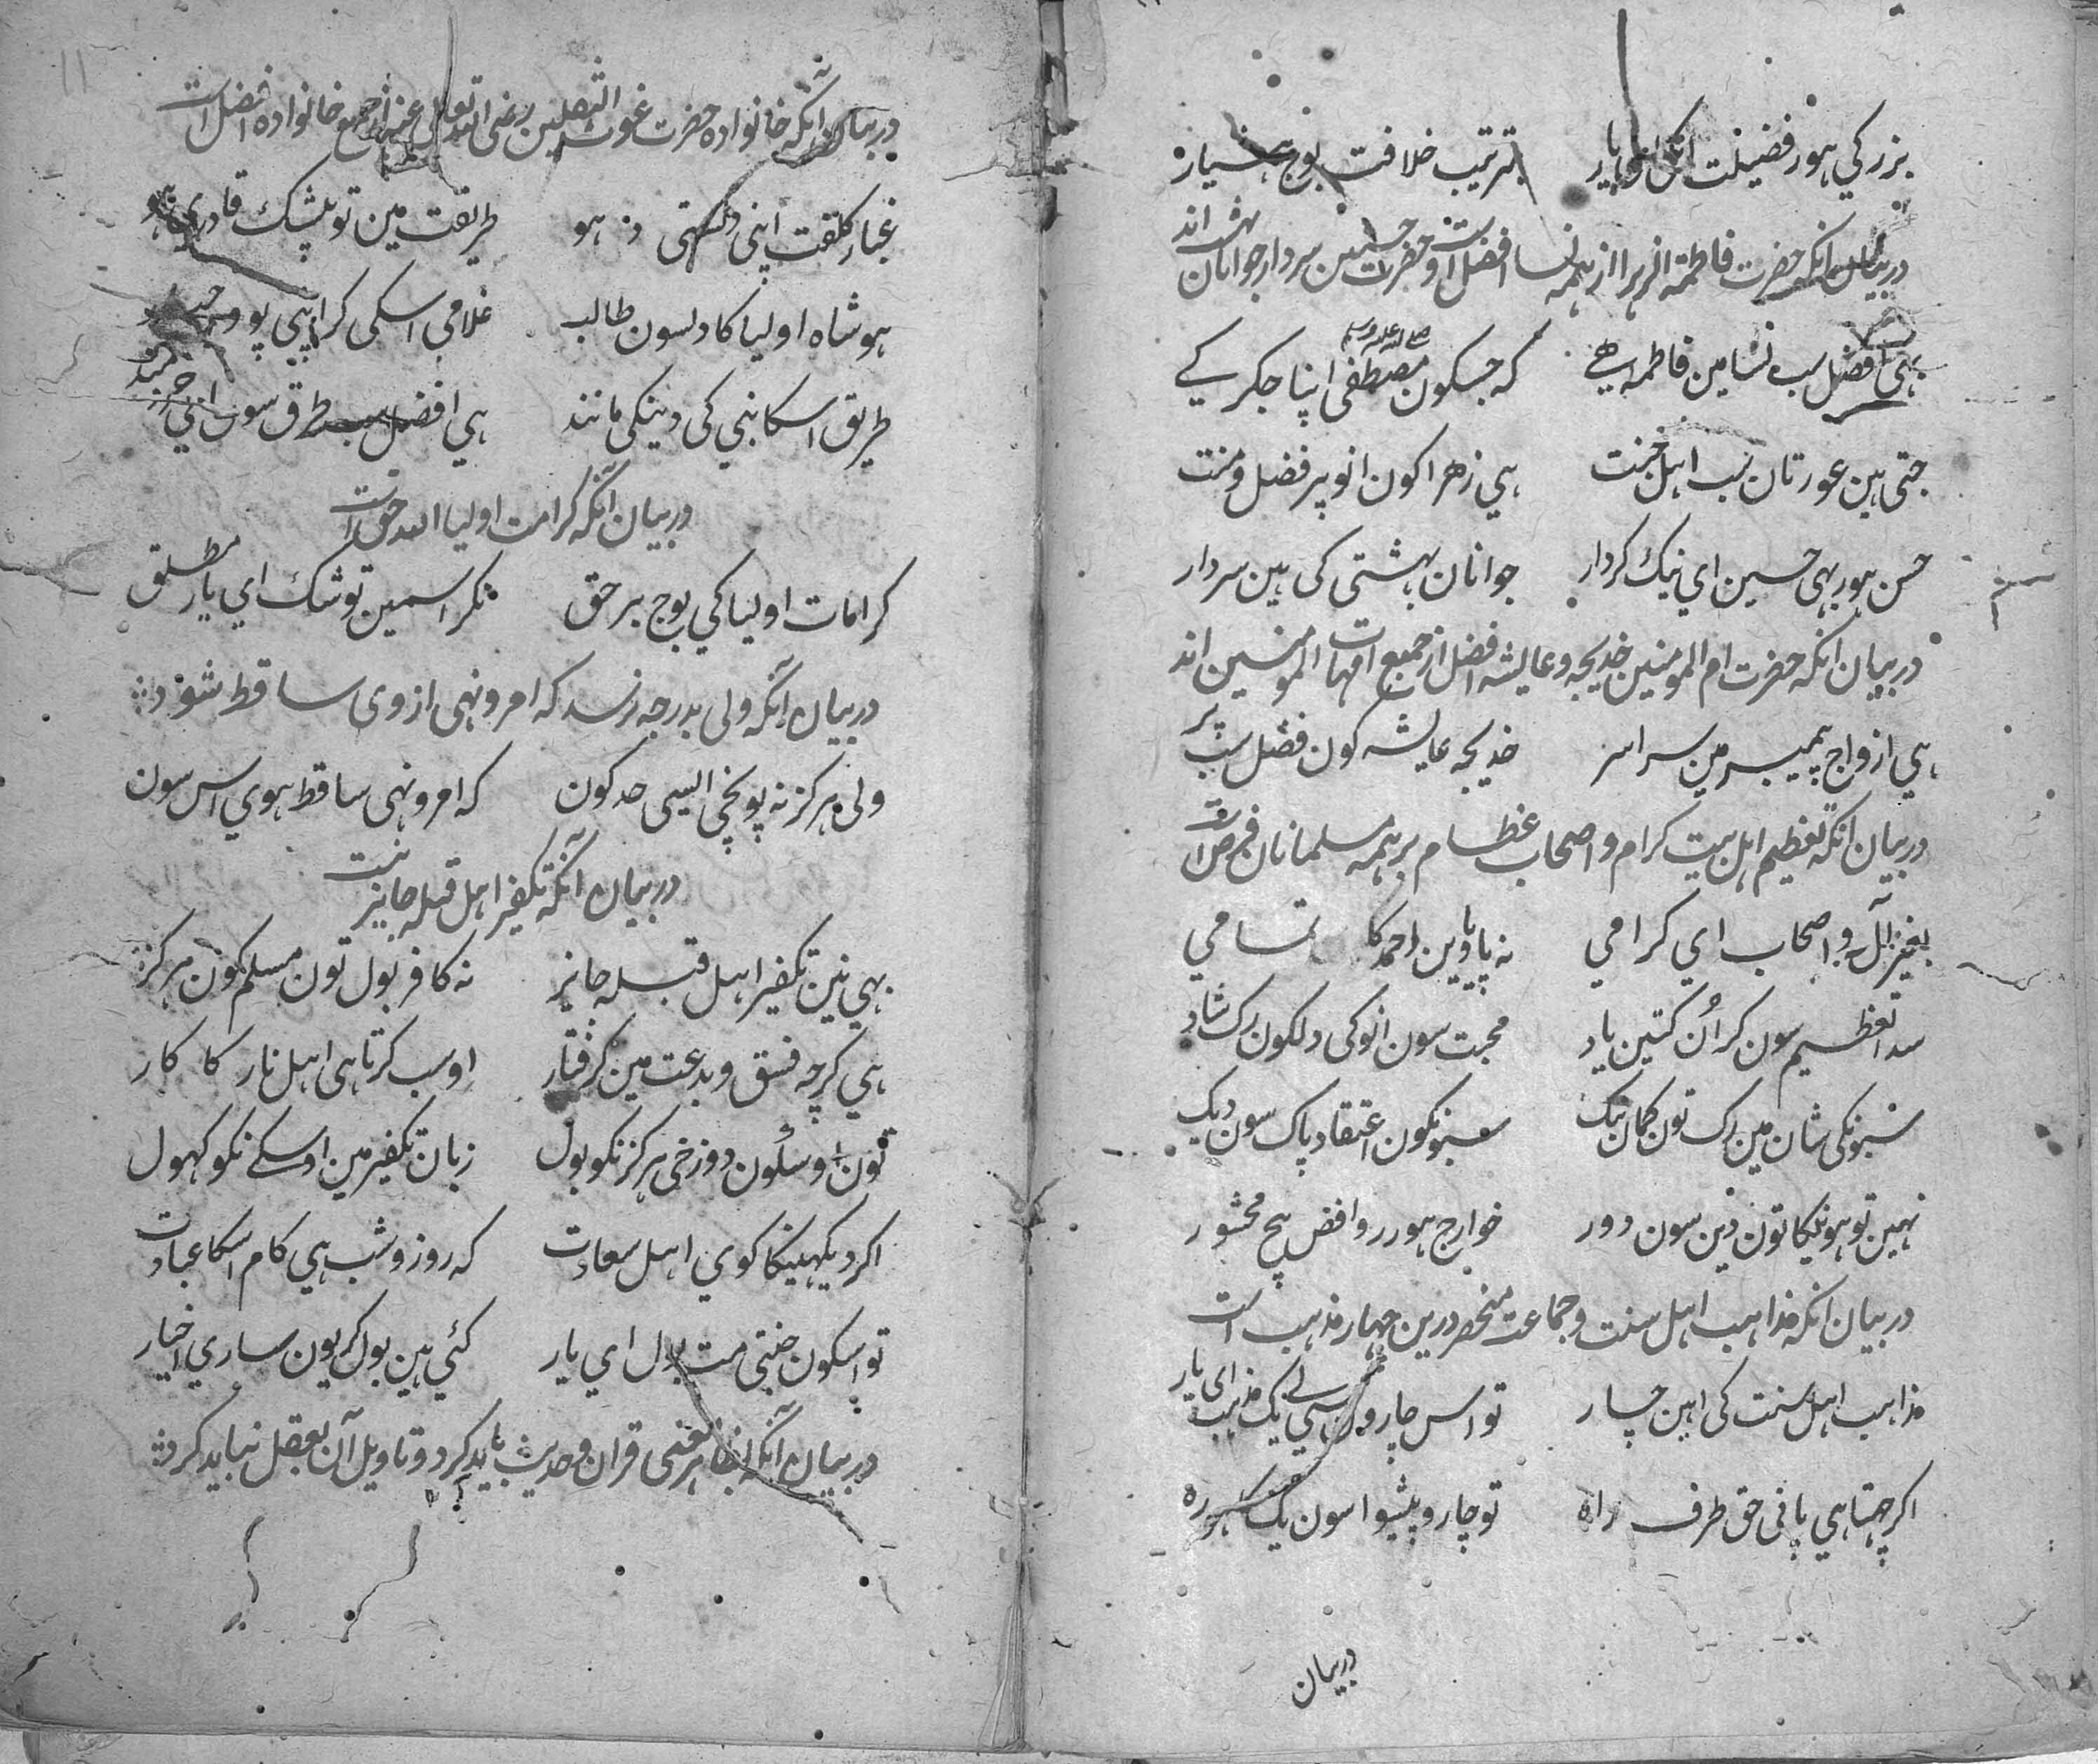 بزرکي هور فضیلت انکی ای یار بترتیب خلافت بوج هشیاره
دربیان انکه حضرت فاطمة الزهرا از همه نسا افضل است و حضرت حسنین سردار جوانان بهشت اند
هی افضل سب نسا مین فاطمه اهے که جسکون مصطفی صلی الله علیه وسلم اپنا جکر کہے
جتی هین عورتان سب اهل جنت هي زهرا کون انو پر فضل و منت
حسن هور بهی حسین اي نیک کردار جوانان بهشتی کی هین سردار
دربیان انکه حضرت ام المومنین خدیجه و عایشه افضل از جمیع امهات المومنین اند
هي ازواج پیمبر مین سراسر خدیجه عایشه کون فضل سب پر
دربیان انکه تعظیم اهل بیت کرام و اصحاب عظام بر همه مسلمانان فرض است
بغیر از آل و اصحاب اي کرامي نه پایا دین احمد کا تمامي
سدا تعظیم سون کر اُن کتین یاد محبت سون انوکی دلکون رک شاد
سبونکی شان مین رک تون کمان نیک سبونکون اعتقاد پاک سون دیک
نهین تو هوئیکا تون دین سون دور خوارج هور روافض بیچ محشور
دربیان انکه مذاهب اهل سنت و جماعت منحصر درین چهار مذهب است
مذاهب اهل سنت کی اهین چار تو اس چارو مین سی لے یک مذهب ای یار
اکر چهتا هي پانی حق طرف راه تو چارو پیشوا سون یک
دربیان
دربیان آنکه خانواده حضرت غوث الثقلین رضی الله تعالی عنه از جمیع خانواده افضل است
غبار کلفت اپنی دلستی د هو طریقت مین تو بیشک قادری هو
هو شاه اولیا کا دلسون طالب غلامي اسکی کر اپی پو
طریق اسکا نبی کی دینکی مانند هي افضل سب طرق سون اي خردمند
دربیان آنکه کرامت اولیا الله حق است
کرامات اولیا کي بوج بر حق نکر اسمین تو شک اي یار مطلق
دربیان آنکه ولی بدرجه نرسد که امر و نهی از وی ساقط شود
ولی هرکز نه پونچی ایسی حد کون که امر و نهی ساقط هوي اس سون
دربیان آنکه تکفیر اهل قبله جایز نیست
بهي نین تکفیر اهل قبله جایز نه کافر بول تون مسلم کون هرکز
هي کرچه فسق و بدعت مین کرفتار اوسب کرتا هی اهل نار کا کار
تون اوسکون دوزخی هرکز نکو بول زبان تکفیر مین اوسکے نکو کهول
اکر دیکهینکا کوي اهل سعادت که روز و شب هي کام اسکا عبادت
تو اسکون جنتی مت بول اي یار کئي هین بول کر یون ساري اخیار
دربیان آنکه بظاهر معنی قران و حدیث باید کرد و تاویل آن بعقل نباید کرد